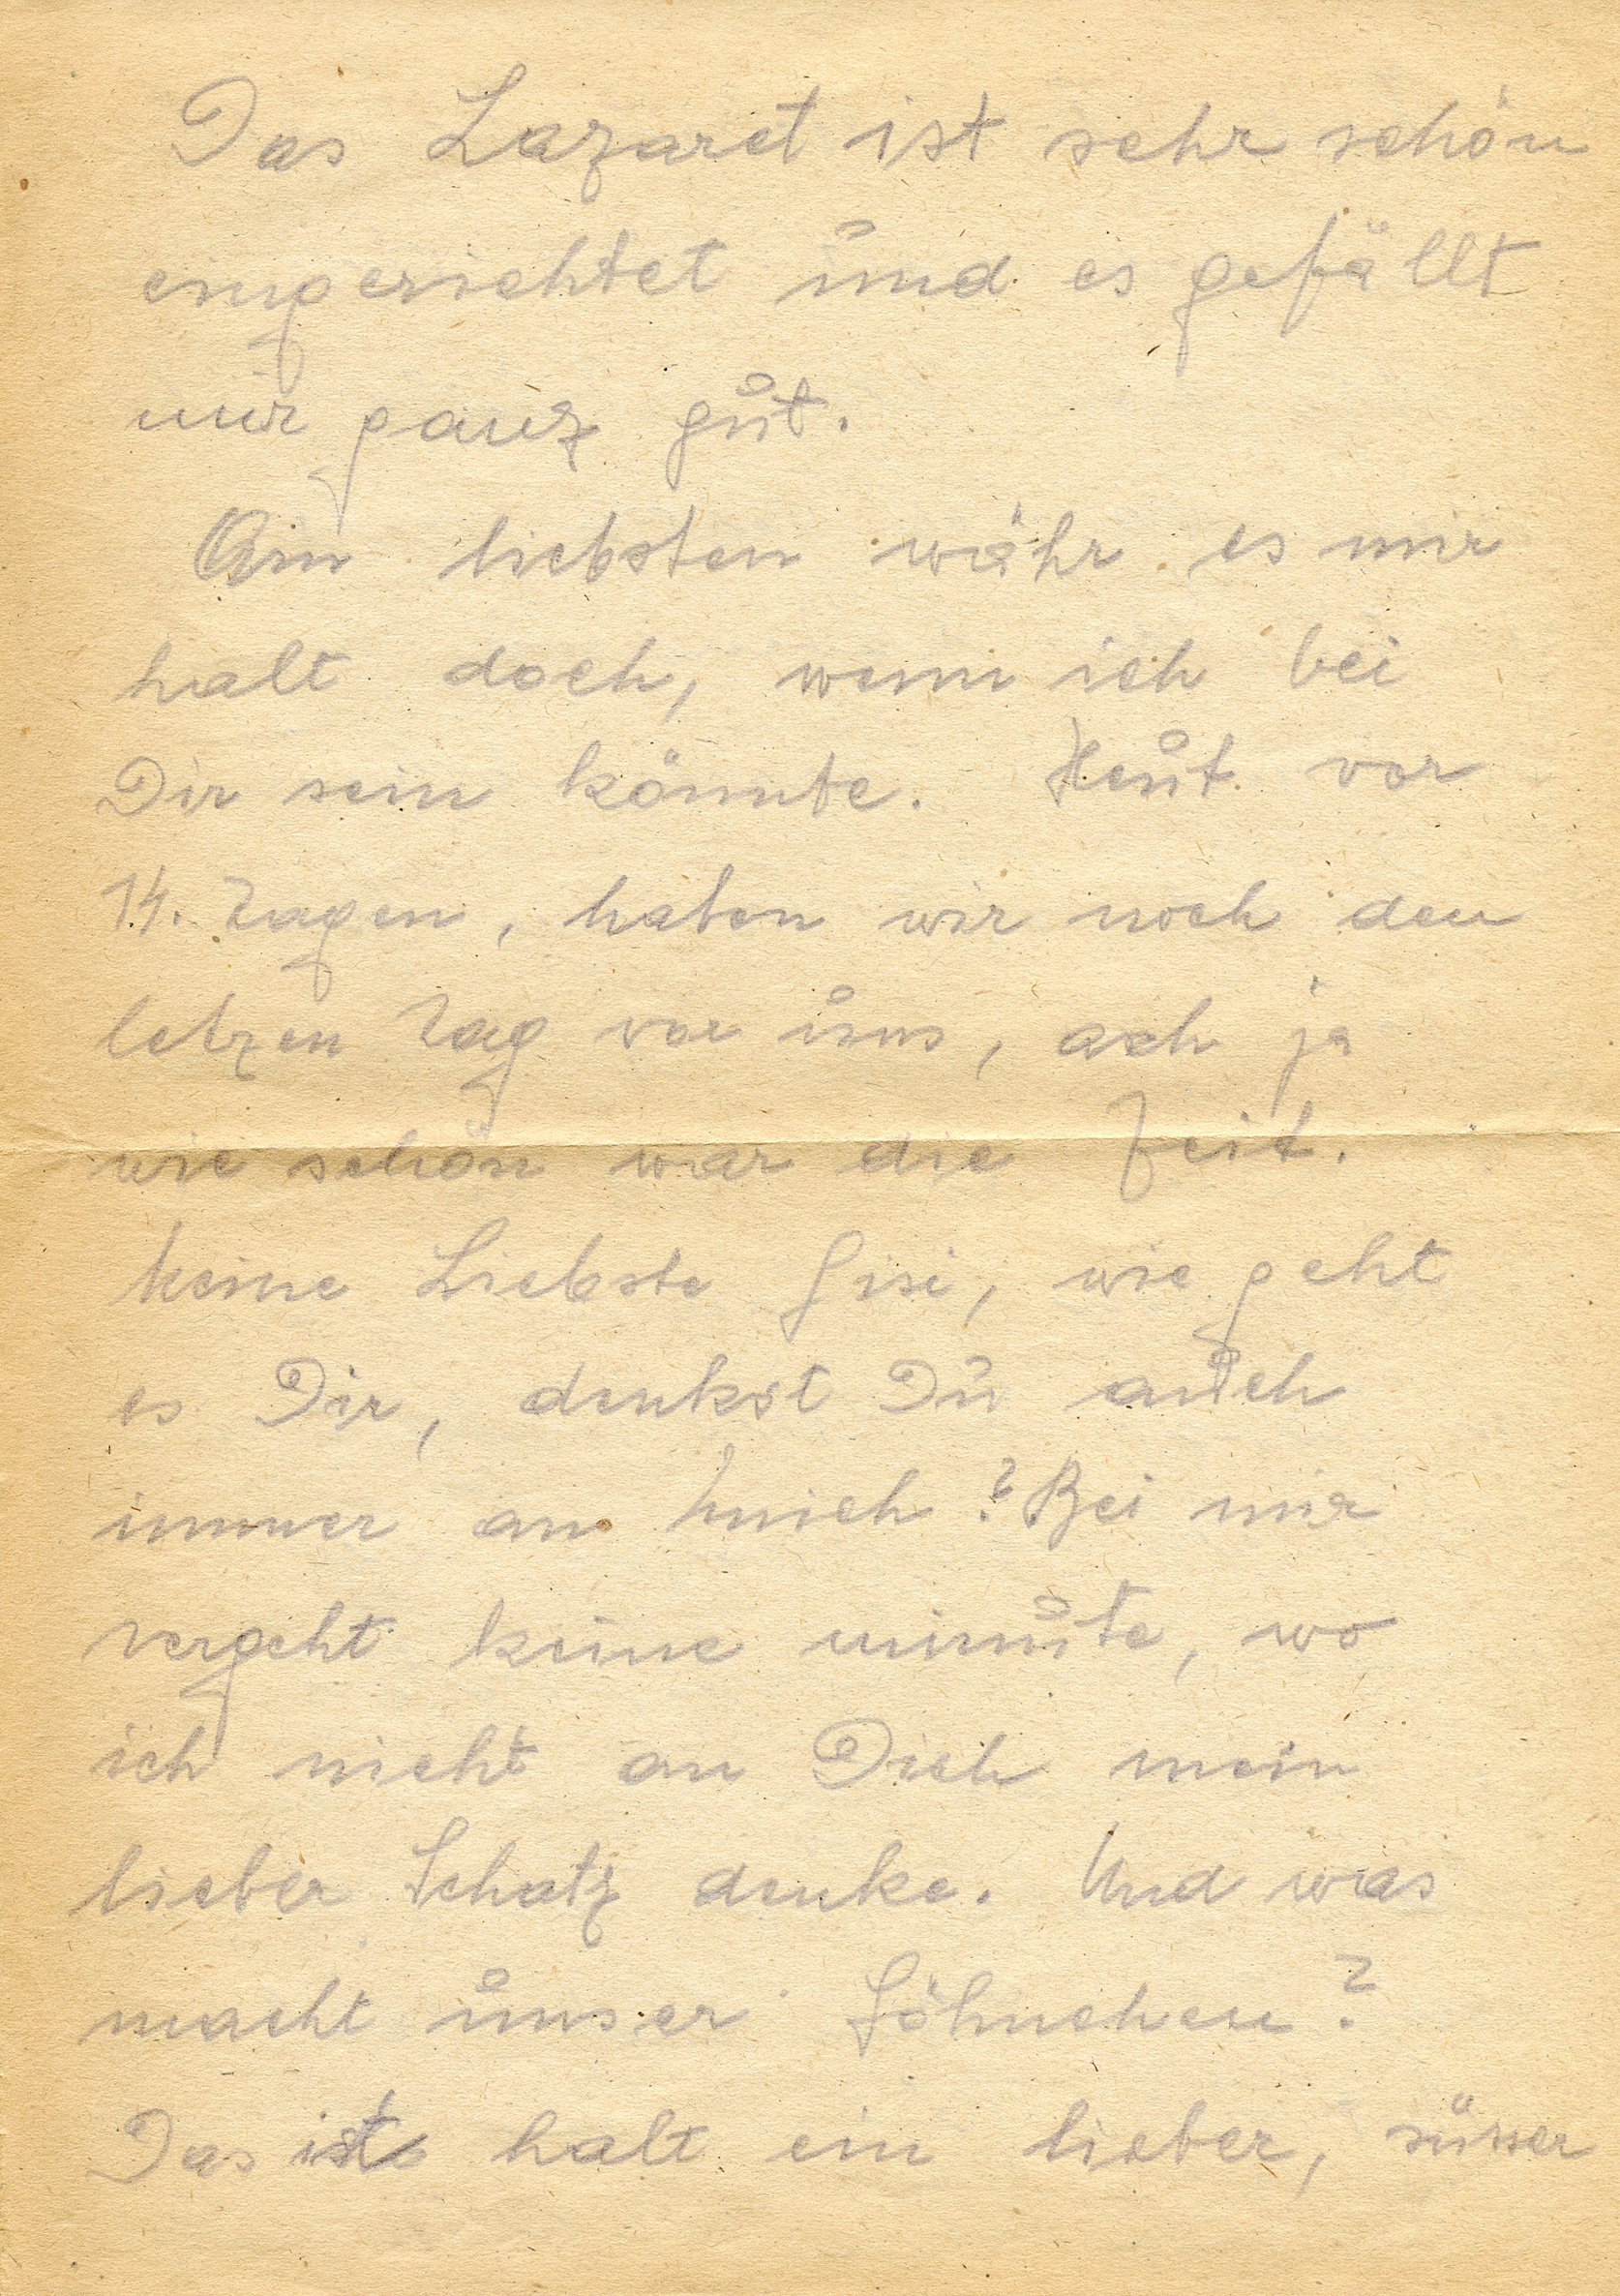 Das Lazaret ist sehr schön
eingerichtet und es gefällt
mir ganz gut.
Am liebsten währ es mir
halt doch, wenn ich bei
Dir sein könnte. Heut vor
14. Tagen, haben wir noch den
letzen Tag vor uns, ach ja
wie schön war die Zeit.
Meine Liebste Gisi, wie geht
es Dir, denkst Du auch
immer an Mich? Bei mir
vergeht keine minute, wo
ich nicht an Dich mein
lieber Schatz denke. Und was
macht unser Söhnchen?
Das ist halt ein lieber, süsser